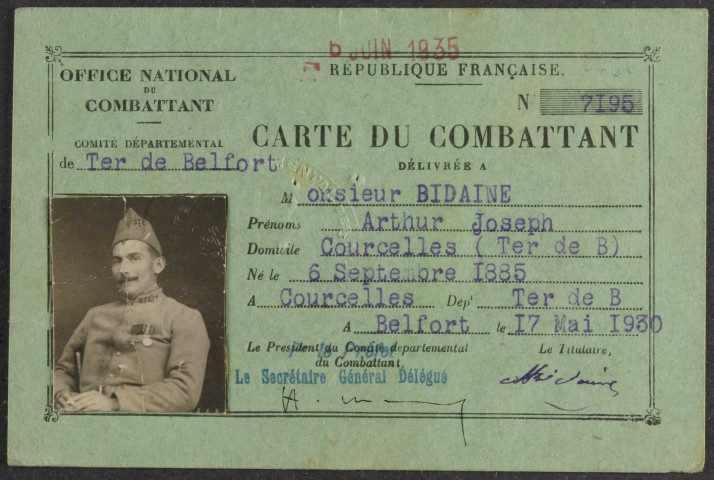 6 JUIN 1935
OFFICE NATIONAL
DU
COMBATTANT
RÉPUBLIQUE FRANÇAISE.
N 7I95
COMITÉ DÉPARTEMENTAL
de Ter de Belfort
CARTE DU COMBATTANT
DÉLIVRÉE A
Monsieur BIDAINE
Prénoms Arthur Joseph
Domicile Courcelles ( Ter de B)
Né le 6 Septembre I885
A Courcelles Dépt Ter de B
A Belfort le I7 Mai I930
Le Président du Comité départemental
du Combattant,
Le Titulaire,
Le Secrétaire Général Délégué